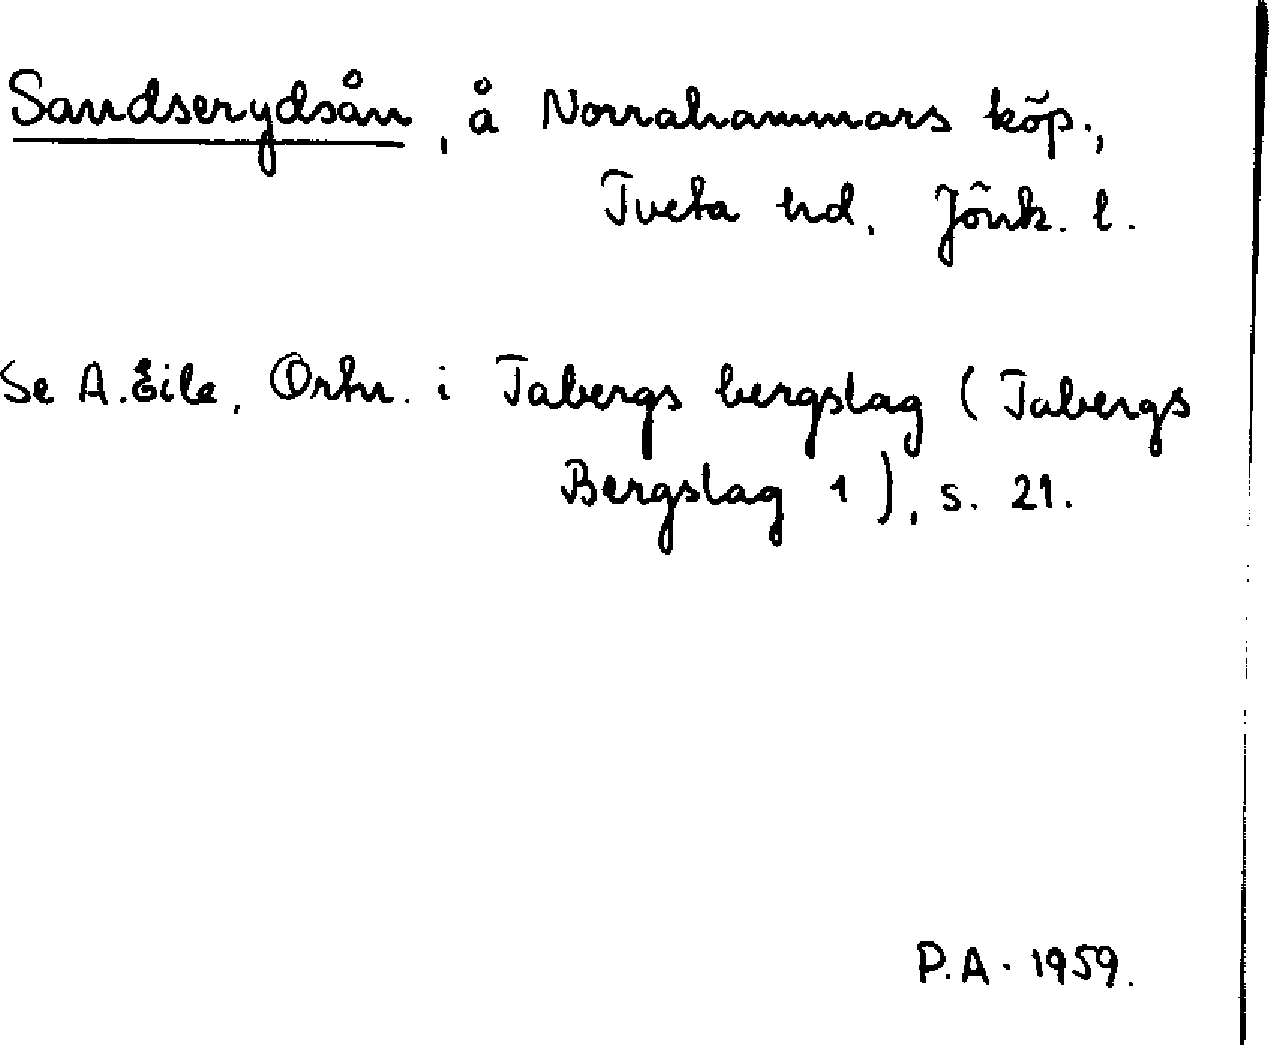 Sandserydsån, å Norrahammars köp.,
Tveta hd, Jönk. l.
Se A. Eile, Ortn. i Tabergs bergslag (Tabergs
Bergslag 1), s. 21.
P.A. 1959.